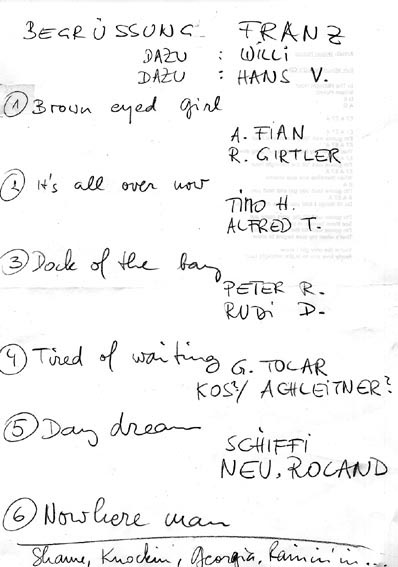 BEGRÜSSUNG FRANZ
DAZU : WILLI
DAZU : HANS V.
① Brown eyed girl
A. FIAN
R. GIRTLER
② It's all over now
TINO H.
ALFRED T.
③ Dock of the bay
PETER R.
RUDI D.
④ Tired of waiting
G. TOLAR
KOS?/ ACHLEITNER?
⑤ Day dream
SCHIFFI
NEU, ROLAND
⑥ Nowhere man
Shame, Knockin', Georgia, Rainin' in...